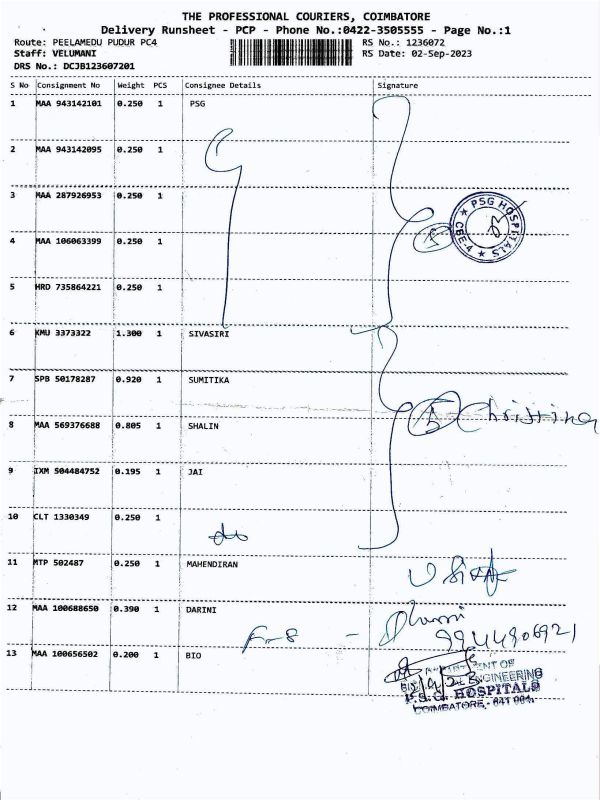 THE PROFESSIONAL COURIERS, COIMBATORE
Delivery Runsheet - PCP - Phone No.:0422-3505555 - Page No.:1
Route: PEELAMEDU PUDUR PC4 RS No.: 1236072
Staff: VELUMANI RS Date: 02-Sep-2023
DRS No.: DCJB123607201
S No Consignment No Weight PCS Consignee Details Signature
1 MAA 943142101 0.250 1 PSG
2 MAA 943142095 0.250 1
3 MAA 287926953 0.250 1
PSG HOSPITALS
CEE-4
5
4 MAA 106063399 0.250 1
5 HRD 735864221 0.250 1
6 KMU 3373322 1.300 1 SIVASIRI
7 SPB 50178287 0.920 1 SUMITIKA
5 Christina
8 MAA 569376688 0.805 1 SHALIN
9 IXM 504484752 0.195 1 JAI
10 CLT 1330349 0.250 1
11 MTP 502487 0.250 1 MAHENDIRAN
12 MAA 100688650 0.390 1 DARINI
F-8 - Dharni
9944906921
13 MAA 100656502 0.200 1 BIO
DEPARTMENT OF
ENGINEERING
P.S.G. HOSPITALS
COIMBATORE - 641 004.